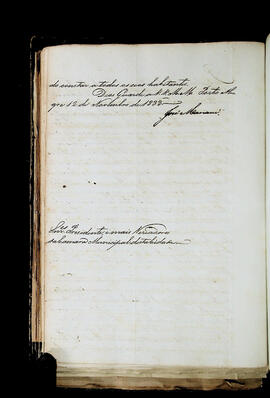 de constar a todos os seus habitantes.
Deos Guarde a V.V. M.M. Porto Ale
gre 12 de Novembro de 1833
José Mariani
Snrs. Presidente, e mais Vereadores
da Camara Municipal desta Cidade